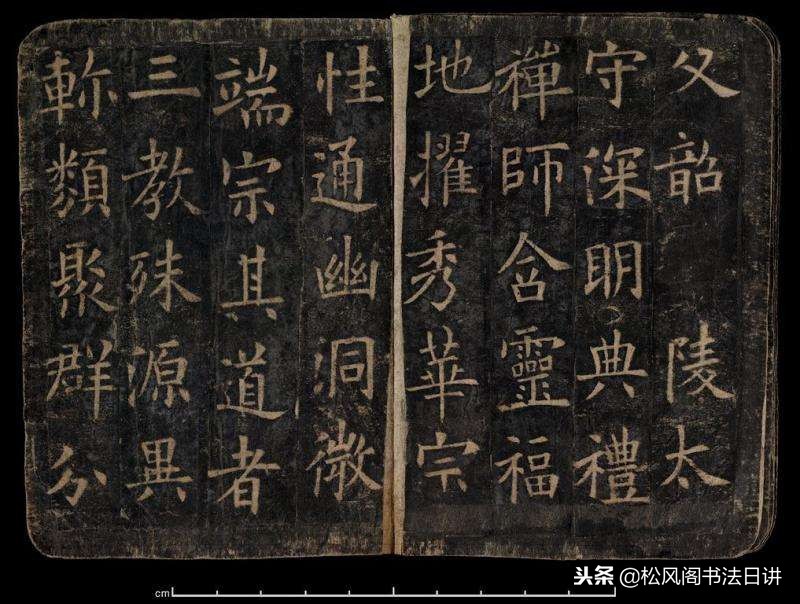 父韶 陵太
守深明典禮
禪師含靈福
地擢秀華宗
性通幽洞微
端宗其道者
三教殊源異
軫類聚群分
cm
头条 @松风阁书法日讲